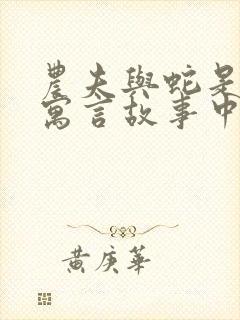 農夫與蛇是
寓言故事中
黃庚華